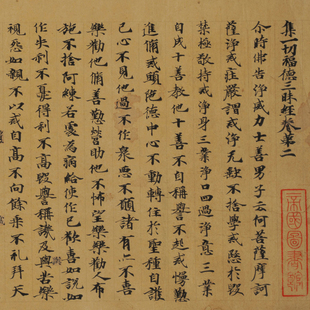 集一切福德三昧經卷第二
尒時佛告淨威力士善男子云何菩薩摩訶
薩淨戒莊嚴謂戒淨无缺不捨學戒愍於毀
禁極敬持戒淨身三業淨口四過淨意三業
自成十善教他十善不自稱譽不起戒慢勲
進修戒頭陁德中心不動轉住於聖種自護
己心不見他過不作衆惡不願諸有不喜
樂勸他修善熟皆助他不怖望樂樂勸人布
施不捨阿練若處為病給使作已歡喜如說如
作失利不憂得利不高毀譽稱譏及與苦樂
視怨如親不以戒自高不向餘乘不礼拜天
帝國圖書藏